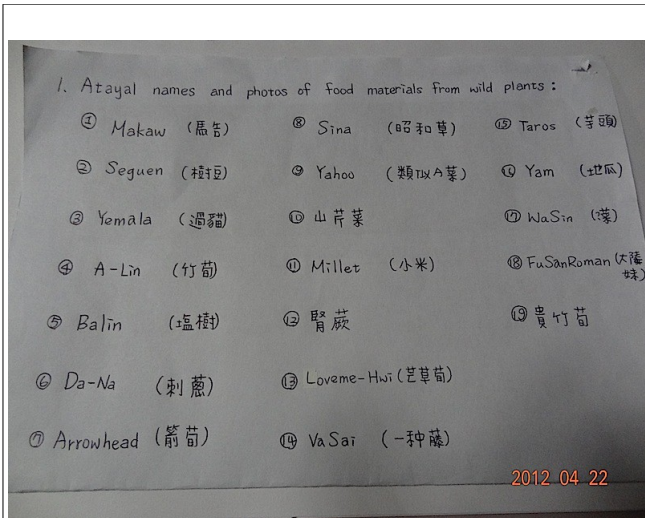 1. Atayal names and photos of food materials from wild plants :
① Makaw (馬告)
② Seguen (樹豆)
③ Yemala (過貓)
④ A-Lin (竹荀)
⑤ Balin (塩樹)
⑥ Da-Na (刺蔥)
⑦ Arrowhead (箭荀)
⑧ Sina (昭和草)
⑨ Yahoo (類似A菜)
⑩ 山芹菜
⑪ Millet (小米)
⑫ 腎蕨
⑬ Loveme-Hwi (芒草荀)
⑭ VaSai (一种藤)
⑮ Taros (芋頭)
⑯ Yam (地瓜)
⑰ WaSin (漢)
⑱ FuSanRoman (大陸
妹)
⑲ 貴竹荀
2012 04 22